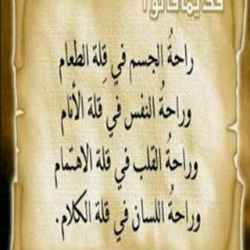 قديما قالوا
راحةُ الجسم في قِلة الطعام
وراحةُ النفس في قلة الآثام
وراحةُ القلب في قلة الاهتمام
وراحةُ اللسان في قلة الكلام.